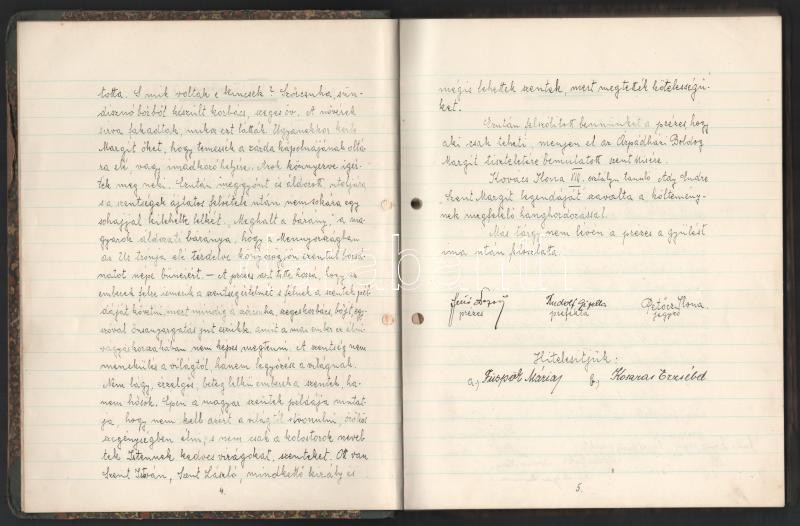 totta. S mik voltak e kincsek? Szőrcsuha, sün-
disznóbőrből készült korbács, szeges öv. A nővérek
sírva fakadtak, mikor ezt látták. Ugyanekkor kérte
Margit őket, hogy temessék a zárda kápolnájának oltá-
ra elé, vagy imádkozó helyére. Azok könnyezve ígér-
ték meg neki. Ezután meggyónt és áldozott, utoljára
s a szentségek ájtatos felvétele után nemsokára egy
sóhajjal kilehelte lelkét. „Meghalt a bárány," a ma-
gyarok áldozati báránya, hogy a Mennyországban
az Úr trónja elé térdelve könyörögjön ezentúl bocsá-
natot népe bűneiért. – A préses ezt tette hozzá, hogy az
emberek félre ismerik a szentség értelmét s félnek a szentek pél-
dáját követni, mert mindig a szőrcsuha, szeges korbács, böjt, egy-
szóval önsanyargatás jut eszükbe, amit a mai ember az élni-
vágyás korszakában nem képes megtenni. A szentség nem
menekülés a világtól, hanem legyőzése a világnak.
Nem lágy, érzelgős, beteg lelkű emberek a szentek, ha-
nem hősök. Épen a magyar szentek példája mutat-
ja, hogy nem kell azért a világtól elvonulni, örökös
szegénységben élni, s nem csak a kolostorok nevel-
tek Istennek kedves virágokat, szenteket. Ott van
Szent István, Szent László, mindkettő király és
4.
mégis lehettek szentek, mert megtették kötelességü-
ket.
Ezután felszólított bennünket a préses, hogy
aki csak teheti, menjen el az Árpádházi Boldog
Margit tiszteletére bemutatott szent misére.
Kovács Ilona VIII. osztályú tanuló Ady Endre
Szent Margit legendáját szavalta a költemény-
nek megfelelő hanghordozással.
Más tárgy nem lévén a préses a gyűlést
ima után feloszlatta.
préses
Rudolf Gizella
prefekta
Petőcz Ilona
jegyző
Hitelesítjük:
a.) Püspök Mária
b.) Koszras Erzsébet
5.